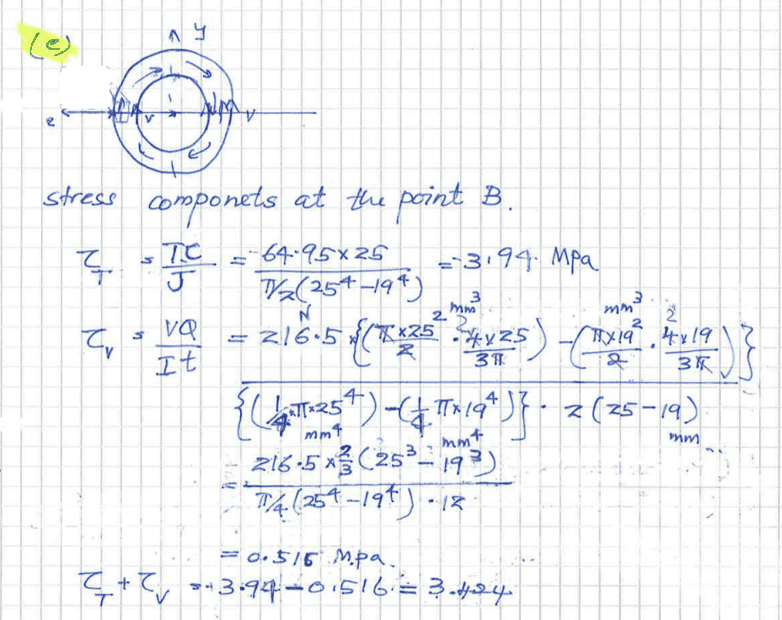 (e)
y
z v v
stress componets at the point B.
τ_T = T.C/J = -64.95×25 / π/2(25⁴-19⁴) = -3.94 MPa
τ_v = VQ/It = 216.5 N × {(π×25²/2 · 4×25/3π) mm³ - (π×19²/2 · 4×19/3π) mm³} / {(1/4×π×25⁴) mm⁴ - (1/4 π×19⁴) mm⁴} · 2(25-19) mm
= 216.5 × 2/3 (25³-19³) / π/4(25⁴-19⁴) · 12
= 0.516 M.pa.
τ_T + τ_v = -3.94-0.516 = 3.424